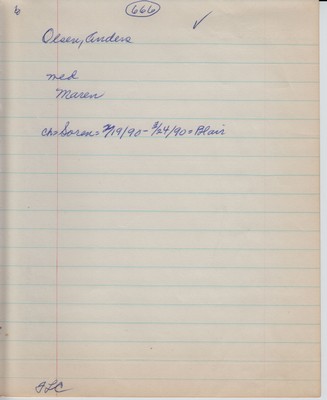 6 666 ✓
Olsen, Anders
med
Maren
ch= Soren= 2/19/90- 3/24/90= Blair
FLC